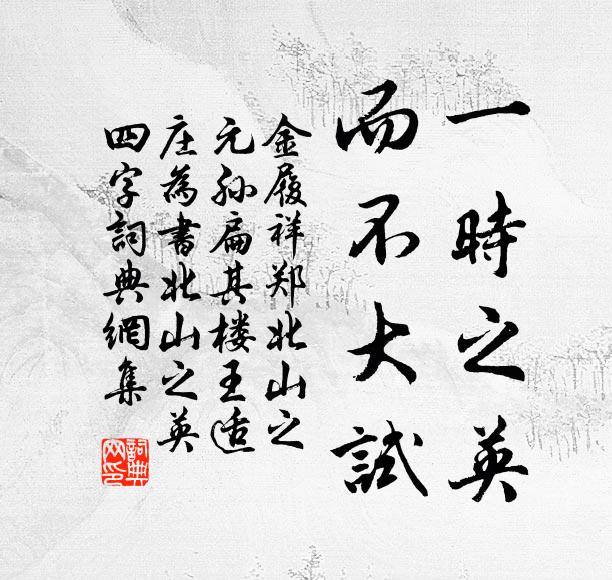 一時之英
而不大試
金履祥郑北山之
元孙扁其楼王适
庄為書北山之英
四字詞典網集
詞典
网印